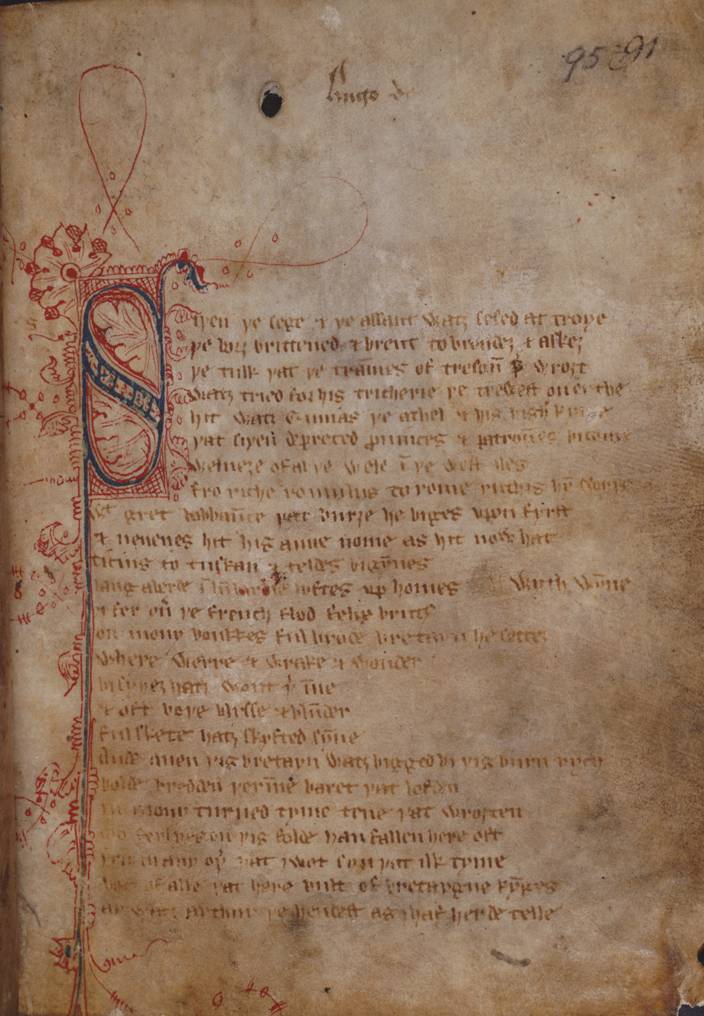 95 91
Hugo de
Siþen þe sege & þe assaut watz sesed at troye
þe borȝ brittened & brent to brondeȝ & askez
þe tulk þat þe tram̄es of tresoū þ̉ wroȝt
watz tried for his tricherie þe trewest on erthe
hit watz Ennias þe athel & his highe kynde
þat siþen depreced prouinces & patroūes bicome
welneȝe of al þe wele ī þe west iles
fro riche romulus to rome ricchis hȳ swyþe
wt gret bobbaūce þat burȝe he biges vpon fyrst
& neuenes hit his aune nome as hit now hat
ticius to tuskan & teldes bigȳnes
langaberde ī lumbardie lyftes vp homes wyth wȳne
& fer oū þe french flod felix brutꝰ
on mony bonkkes ful brode bretayn he settez
where werre & wrake & wonder
bi syþez hatz wont þ̉ īne
& oft boþe blysse & blūder
ful skete hatz skyfted sȳne
Ande quen þis bretayn watz bigged bi þis burn rych
bolde bredden þerīne baret þat lofden
in mony turned tyme tene þat wroȝten
mo ferlyes on þis folde han fallen here oft
þen in any oþ̉ þat I wot syn þat ilk tyme
bot of alle þat here bult of bretaygne kȳges
ay watz arthur þe hendest as I haf herde telle